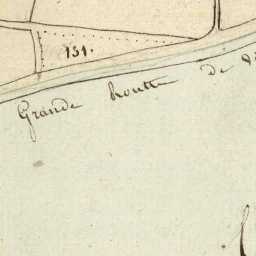 151.
Grande Routte de